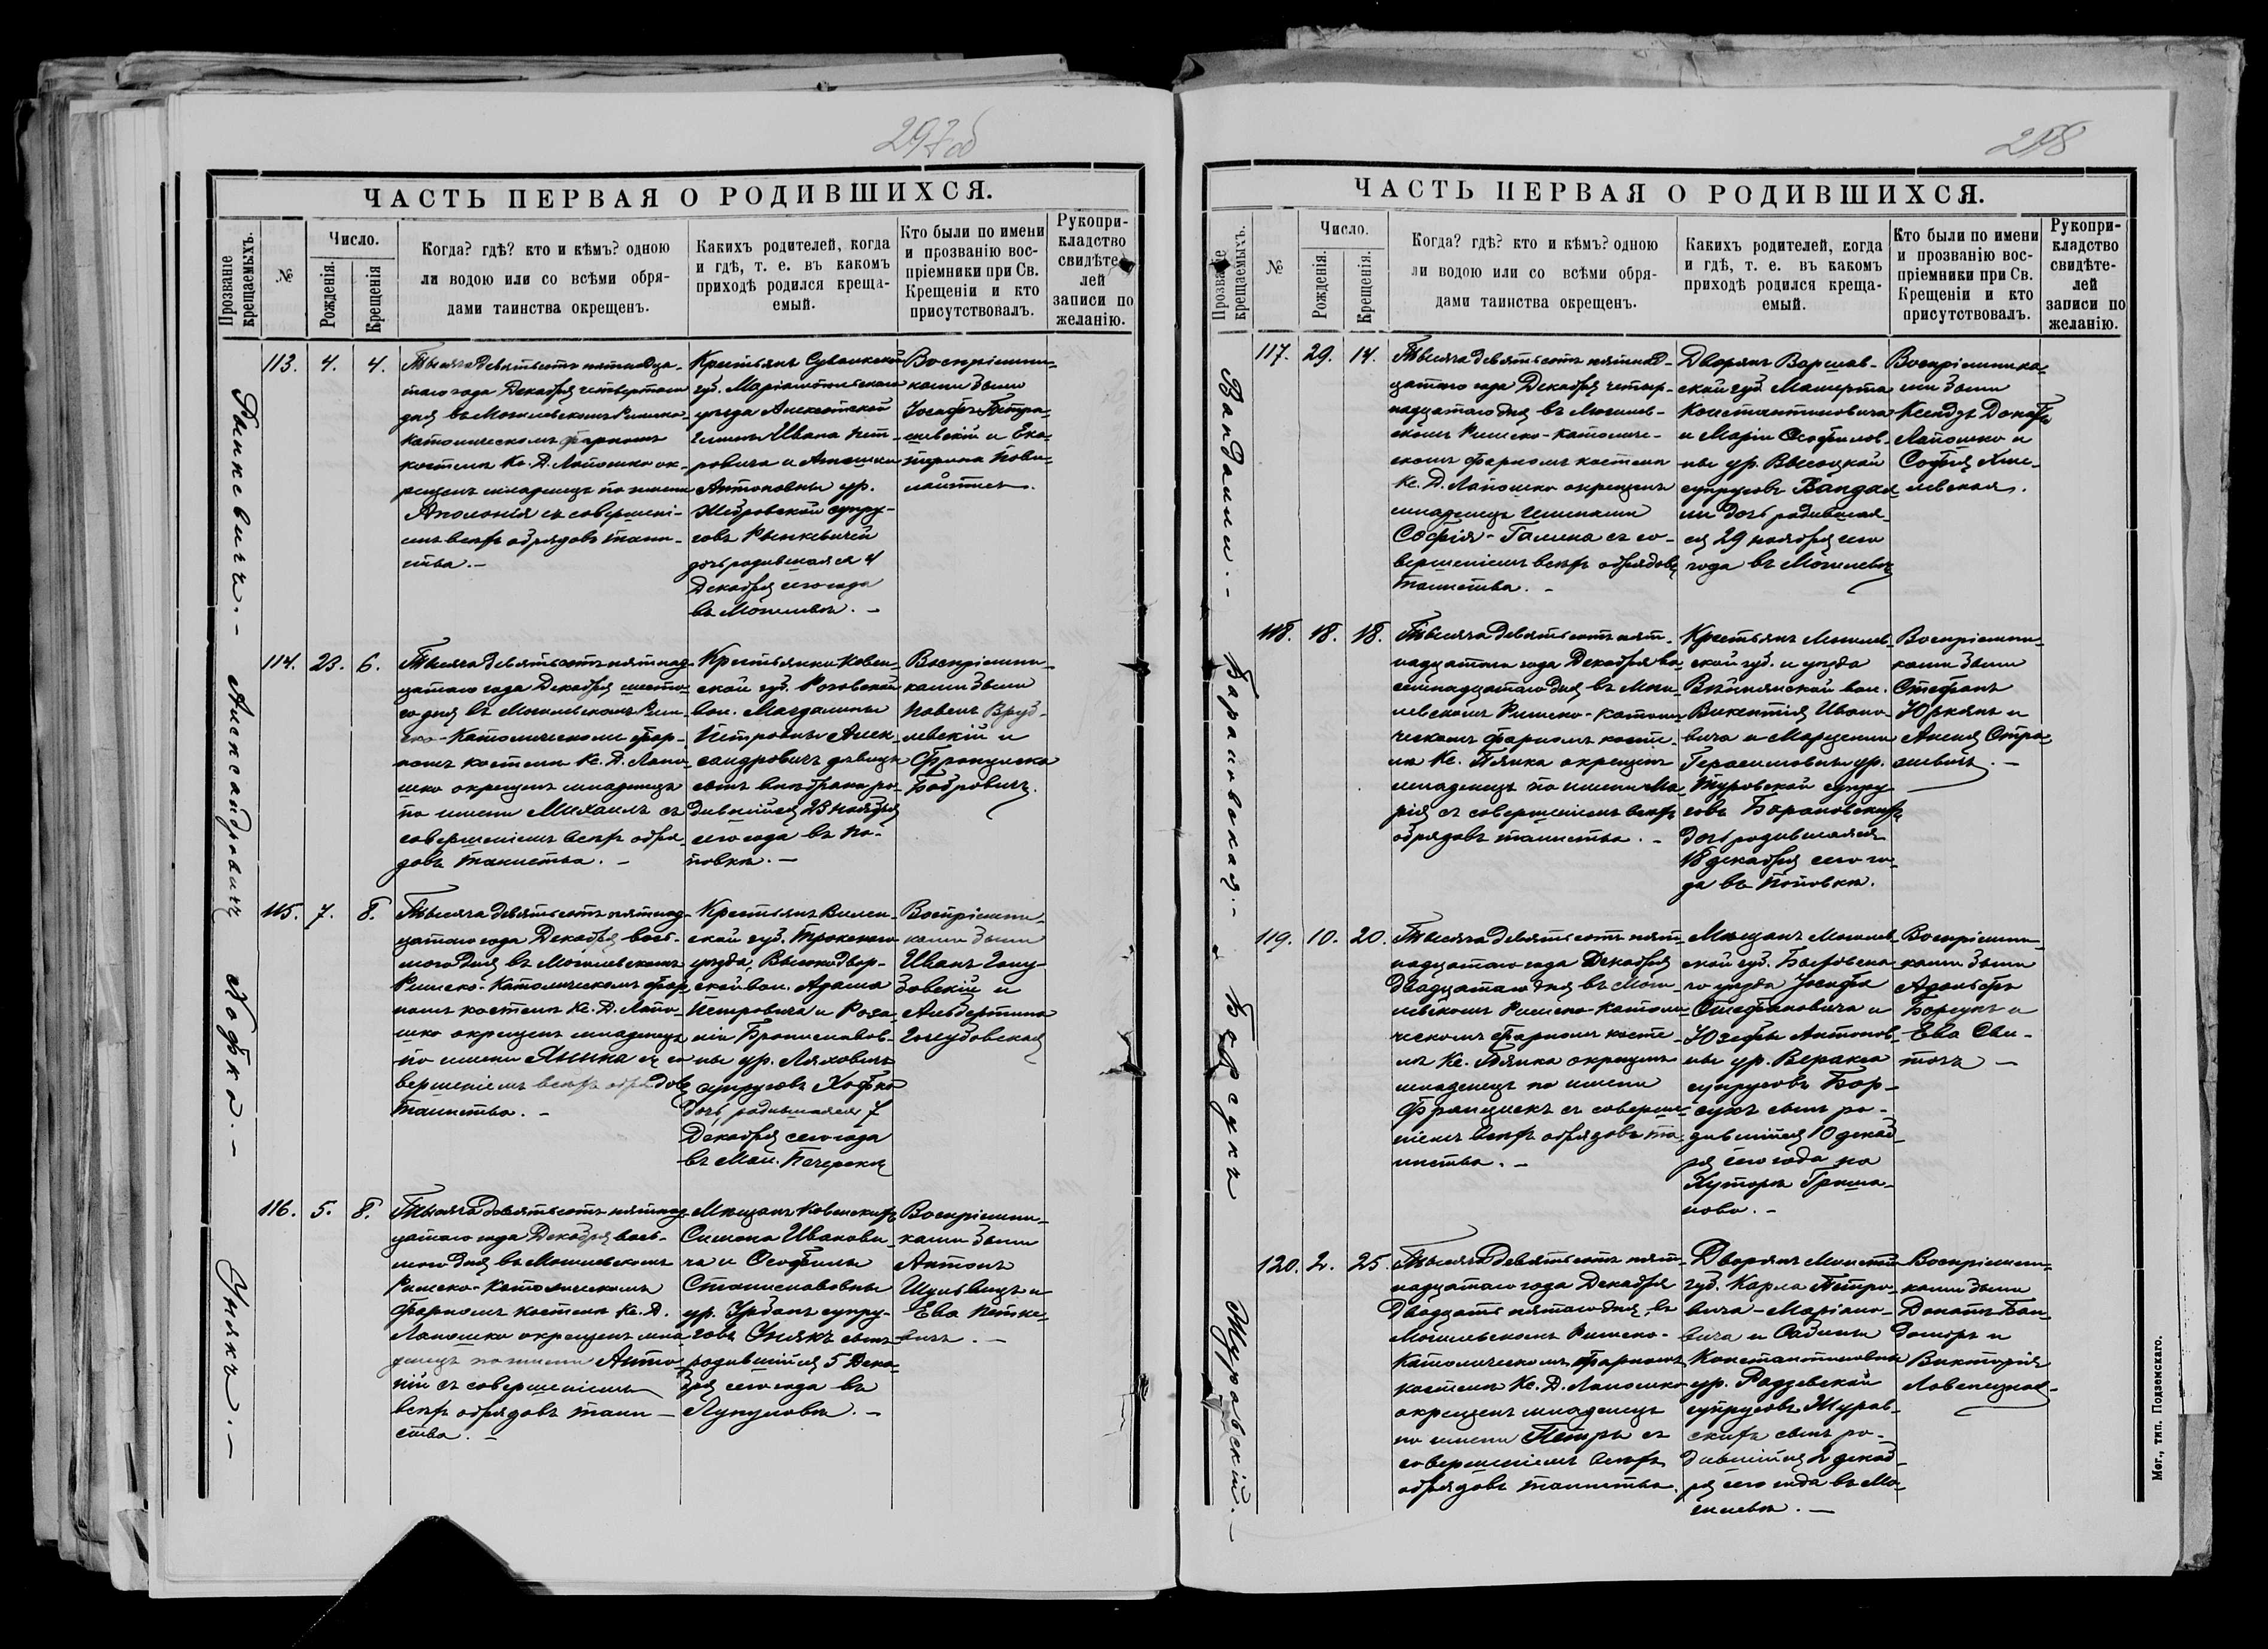 297об
ЧАСТЬ ПЕРВАЯ О РОДИВШИХСЯ.
Прозваніе крещаемыхъ.
№
Число.
Рожденія.
Крещенія
Когда? гдѣ? кто и кѣмъ? одною
ли водою или со всѣми обря-
дами таинства окрещенъ.
Какихъ родителей, когда
и гдѣ, т. е. въ какомъ
приходѣ родился креща-
емый.
Кто были по имени
и прозванію вос-
пріемники при Св.
Крещеніи и кто
присутствовалъ.
Рукопри-
кладство
свидѣте-
лей
записи по
желанію.
113. 4. 4.
Тысяча девятьсотъ пятнадца-
таго года Декабря четвертаго
дня въ Могилевскомъ Римско-
католическомъ фарномъ
костелѣ Кс. Д. Лапошко ок-
рещенъ младенецъ по имени
Аполонія съ совершені-
емъ всѣхъ обрядовъ таин-
ства. –
Крестьянъ Сувалкской
губ. Маріампольскаго
уѣзда Алексотской
гмины Ивана Пет-
ровича и
Антоновны ур.
супру-
говъ Рынкевичей
дочь родившаяся 4
Декабря сего года
въ Могилевѣ. –
Воспріемни-
ками были
Іосифъ Петра-
шевскій и Ека-
терина
114. 23. 6.
Тысяча девятьсотъ пятнад-
цатаго года Декабря шесто-
го дня въ Могилевскомъ Рим-
ско-Католическомъ фар-
номъ костелѣ Кс. Д. Лапо-
шко окрещенъ младенецъ
по имени Михаилъ съ
совершеніемъ всѣхъ обря-
довъ таинства. –
Крестьянки Ковен-
ской губ. Роговской
вол. Магдалины
Петровны Алек-
сандровичъ дѣвицы
сынъ внѣбрачно ро-
дившійся 23 ноября
сего года въ По-
повкѣ. –
Воспріемни-
ками были
Павелъ Вруб-
левскій и
Франциска
Бобровичъ.
Александровичъ
115. 7. 8.
Тысяча девятьсотъ пятнад-
цатаго года Декабря вось-
мого дня въ Могилевскомъ
Римско-Католическомъ фар-
номъ костелѣ Кс. Д. Лапо-
шко окрещенъ младенецъ
по имени Янина съ со-
вершеніемъ всѣхъ обрядовъ
таинства. –
Крестьянъ Вилен-
ской губ. Трокскаго
уѣзда, Высокодвор-
ской вол. Адама
Петровича и Роза-
ліи Брониславов-
ны ур. Ляховичъ
супруговъ Хофко
дочь родившаяся 7
Декабря сего года
въ Печерскѣ
Воспріемни-
ками были
Иванъ Голу-
бовскій и
Альбертина
Голубовская
116. 5. 8.
Тысяча девятьсотъ пятнад-
цатаго года Декабря вось-
мого дня въ Могилевскомъ
Римско-Католическомъ
фарномъ костелѣ Кс. Д.
Лапошко окрещенъ мла-
денецъ по имени Анто-
ній съ совершеніемъ
всѣхъ обрядовъ таин-
ства. –
Мѣщанъ Ковенскихъ
Симона Иванови-
ча и Теофили
Станиславовны
ур. Урбанъ супру-
говъ Унякъ сынъ
родившійся 5 Дека-
бря сего года въ
Лупуловѣ. –
Воспріемни-
ками были
Антонъ
и
Ева Петке-
вичъ. –
Унякъ. –
298
ЧАСТЬ ПЕРВАЯ О РОДИВШИХСЯ.
Прозваніе крещаемыхъ.
№
Число.
Рожденія.
Крещенія.
Когда? гдѣ? кто и кѣмъ? одною
ли водою или со всѣми обря-
дами таинства окрещенъ.
Какихъ родителей, когда
и гдѣ, т. е. въ какомъ
приходѣ родился креща-
емый.
Кто были по имени
и прозванію вос-
пріемники при Св.
Крещеніи и кто
присутствовалъ.
Рукопри-
кладство
свидѣте-
лей
записи по
желанію.
Вандалли. –
117. 29. 14.
Тысяча девятьсотъ пятнад-
цатаго года Декабря четыр-
надцатаго дня въ Могилев-
скомъ Римско-Католиче-
скомъ фарномъ костелѣ
Кс. Д. Лапошко окрещенъ
младенецъ именами
Софія-Галина съ со-
вершеніемъ всѣхъ обрядовъ
таинства. –
Дворянъ Варшав-
ской губ.
Константиновича
и Маріи Теофилов-
ны ур. Высоцкой
супруговъ Вандал-
ли дочь родившая-
ся 29 ноября сего
года въ Могилевѣ
Воспріемника-
ми были
Ксендзъ Донатъ
Лапошко и
Софія Хме-
левская.
Барановская. –
118. 18. 18.
Тысяча девятьсотъ пят-
надцатаго года Декабря во-
семнадцатаго дня въ Моги-
левскомъ Римско-Католи-
ческомъ фарномъ косте-
лѣ Кс. окрещенъ
младенецъ по имени Ма-
рія съ совершеніемъ всѣхъ
обрядовъ таинства. –
Крестьянъ Могилев-
ской губ. и уѣзда
вол.
Викентія Ивано-
вича и
Герасимовны ур.
Туровской супру-
говъ Барановскихъ
дочь родившаяся
18 декабря сего го-
да въ Поповкѣ.
Воспріемни-
ками были
Стефанъ
Юркянъ и

119. 10. 20.
Тысяча девятьсотъ пят-
надцатаго года Декабря
двадцатаго дня въ Моги-
левскомъ Римско-Католи-
ческомъ фарномъ косте-
лѣ Кс. окрещенъ
младенецъ по имени
Францискъ съ соверше-
ніемъ всѣхъ обрядовъ та-
инства. –
Мѣщанъ Могилев-
ской губ. Быховска-
го уѣзда Іосифа
Стефановича и
Юзефы Антонов-
ны ур. Веракса
супруговъ Бор-
сукъ сынъ ро-
дившійся 10 декаб-
ря сего года на
Хуторѣ Гриша-
ново. –
Воспріемни-
ками были
Адольфъ
Борсукъ и
Ева Сви-
тохъ –
Борсукъ
120. 2. 25.
Тысяча девятьсотъ пят-
надцатаго года Декабря
двадцать пятаго дня въ
Могилевскомъ Римско-
Католическомъ фарномъ
костелѣ Кс. Д. Лапошко
окрещенъ младенецъ
по имени Петръ съ
совершеніемъ всѣхъ
обрядовъ таинства.
Дворянъ Минской
губ. Карла Петро-
вича-Маріано-
вича и Сабины
Константиновны
ур. Родзевской
супруговъ Журав-
скихъ сынъ ро-
дившійся 2 декаб-
ря сего года въ Мо-
гилевѣ. –
Воспріемни-
ками были
Донатъ Бон-
доръ и
Викторія

Журавскій. –
Мог., тип. Подземскаго.